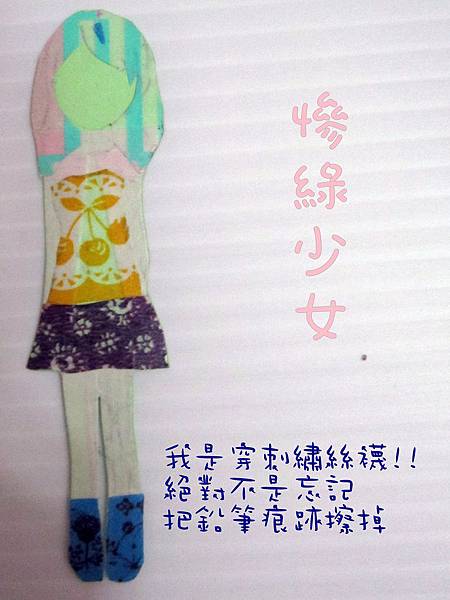 慘綠少女
我是穿刺繡絲襪!!
絕對不是忘記
把鉛筆痕跡擦掉